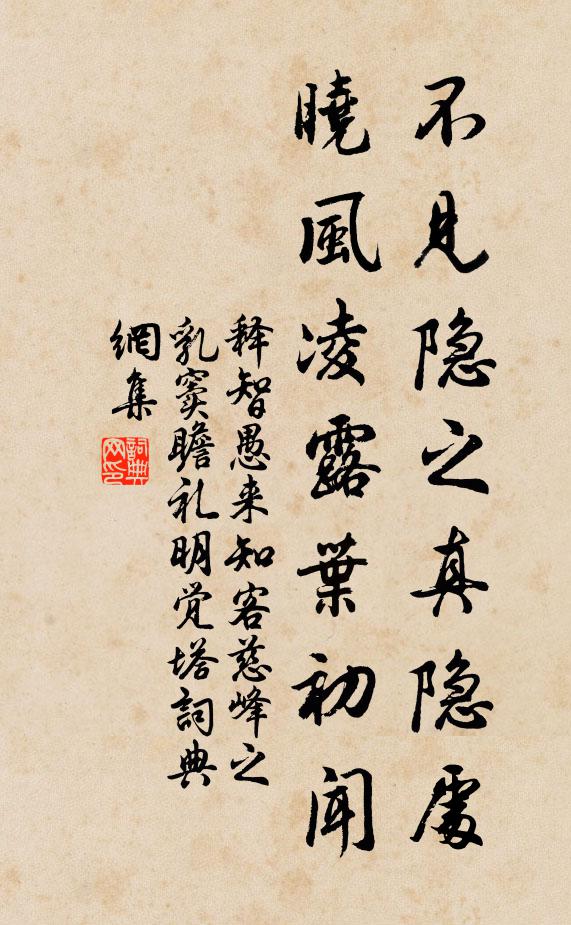 不見隐之真隐處
曉風凌露葉初聞
释智愚来知客慈峰之
乳窦瞻礼明觉塔詞典
網集
詞典
网印